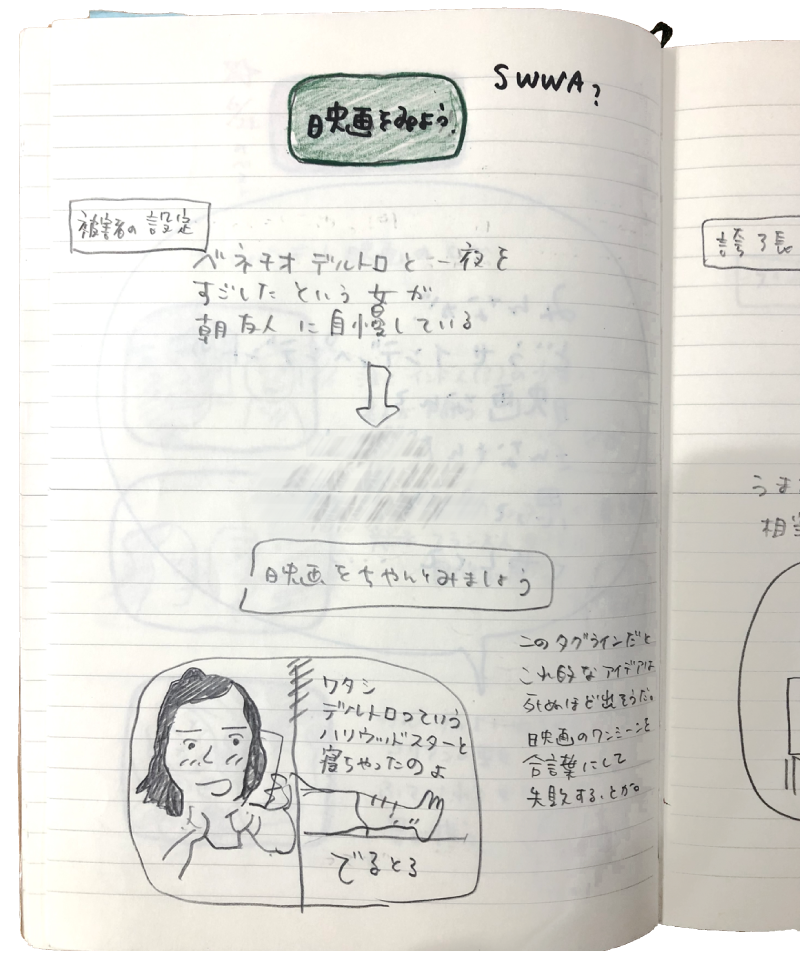 SWWA?
映画をみよう!
被害者の設定
ベネチオ デルトロと一夜を
すごしたという女が
朝友人に自慢している
映画をちゃんとみましょう
このタグラインだと
これ的なアイデアは
死ぬほど出そうだ。
映画のワンシーンを
合言葉にして
失敗する、とか。
ワタシ
デルトロっていう
ハリウッドスターと
寝ちゃったのよ
でるとろ
誇張
うま
相当